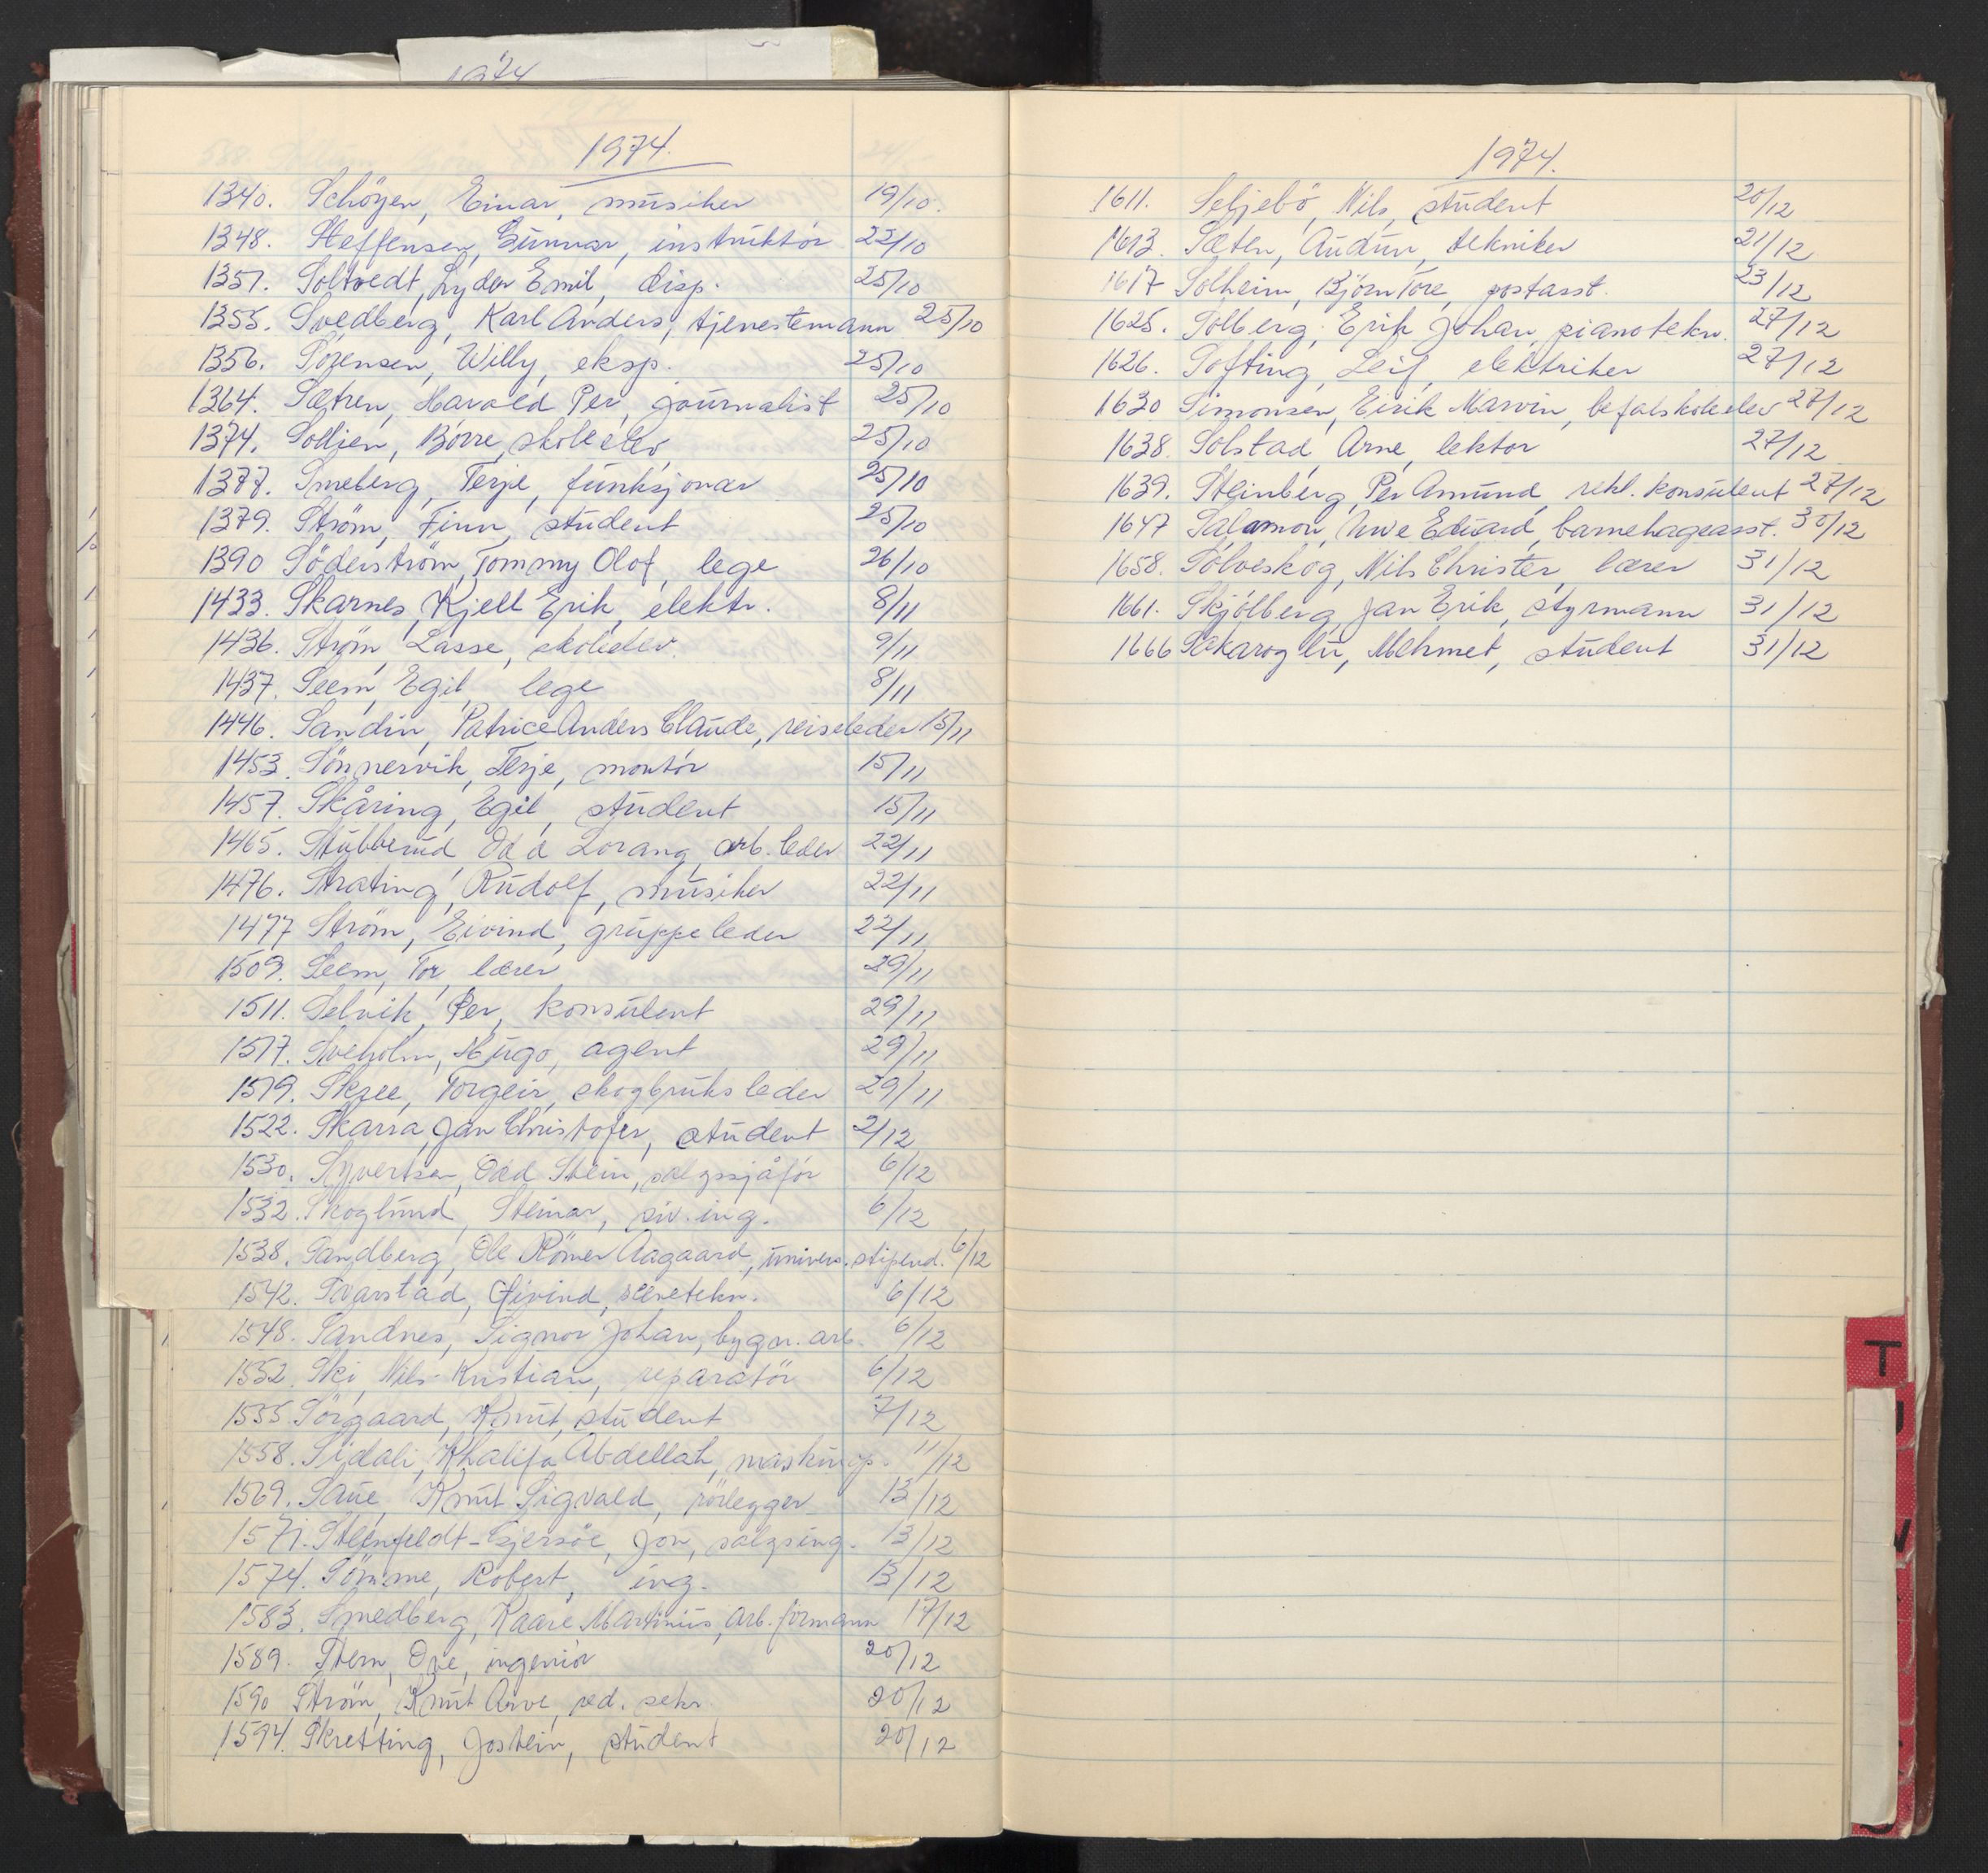 1974
1974.
1340. Schöyen, Einar, musiker 19/10.
1348. Steffensen, Gunnar, instruktör 22/10
1351. Soltvedt, Lyder Emil, disp. 25/10
1355. Svedberg, Karl Anders, tjenestemann 25/10
1356. Sörensen, Willy, eksp. 25/10
1364. Sætren, Harald Per, journalist 25/10
1374. Solljen, Börre, skoleelev 25/10
1377. Smeberg, Terje, funksjonær 25/10
1379. Ström, Finn, student 25/10
1390 Söderström, Tommy Olof, lege 26/10
1433. Skarnes, Kjell Erik, elektr. 8/11
1436. Ström, Lasse, skoleelev. 9/11
1437. Seem, Egil, lege 8/11
1446. Sandin, Patrice Anders Claude, reiseleder 15/11
1453. Sönnervik, Terje, montör 15/11
1457. Skåring, Egil, student 15/11
1465. Stubberud, Odd Lorang, arb.leder 22/11
1476. Strating, Rudolf, musiker 22/11
1477 Ström, Eivind, gruppeleder 22/11
1509. Seem, Tor, lærer 29/11
1511. Selvik, Per, konsulent 29/11
1517. Sveholm, Hugo, agent 29/11
1519. Skree, Torgeir, skogbruksleder 29/11
1522. Skarra, Jan Christofer, student 2/12
1530. Syvertsen, Odd Stein, salgssjåför 6/12
1532. Skoglund, Steinar, siv.ing. 6/12
1538. Sandberg, Ole Römer Aagaard, univers.stipend. 6/12
1542. Svarstad, Eivind, 6/12
1548. Sandnes, Signor Johan, bygn.arb. 6/12
1552. Ski, Nils-Kristian, reparatör 6/12
1555 Sörgaard, Knut, student 7/12
1558. Sidali, Khalifa Abdellah, maskinop. 11/12
1569. Saue, Knut Sigvald, rörlegger 13/12
1571. Steenfeldt-Gjersöe, Jon, salgsing. 13/12
1574. Sömme, Robert, ing. 13/12
1583. Smedberg, Kaare Martinius, arb.formann 17/12
1589. Stern, Ove, ingeniör 20/12
1590 Ström, Knut Arve, red.sekr. 20/12
1594. Skretting, Jostein, student 20/12
1974.
1611. Seljebö, Nils, student 20/12
1613. Sæten, Audun, tekniker 21/12
1617 Solheim, Björn Tore, postasst. 23/12
1625. Solberg, Erik Johan, pianotekn. 27/12
1626. Softing, Leif, elektriker 27/12
1630 Simonsen, Eirik Marvin, befalskoleelev 27/12
1638. Solstad, Arne, lektor 27/12
1639. Steinberg, Per Amund, rekl. konsulent 27/12
1647 Salamon, Uwe Eduard, barnehageasst. 30/12
1658. Sölveskog, Nils Christer, lærer 31/12
1661. Skjölberg, Jan Erik, styrmann 31/12
1666 Sakaroglu, Mehmet, student 31/12
T